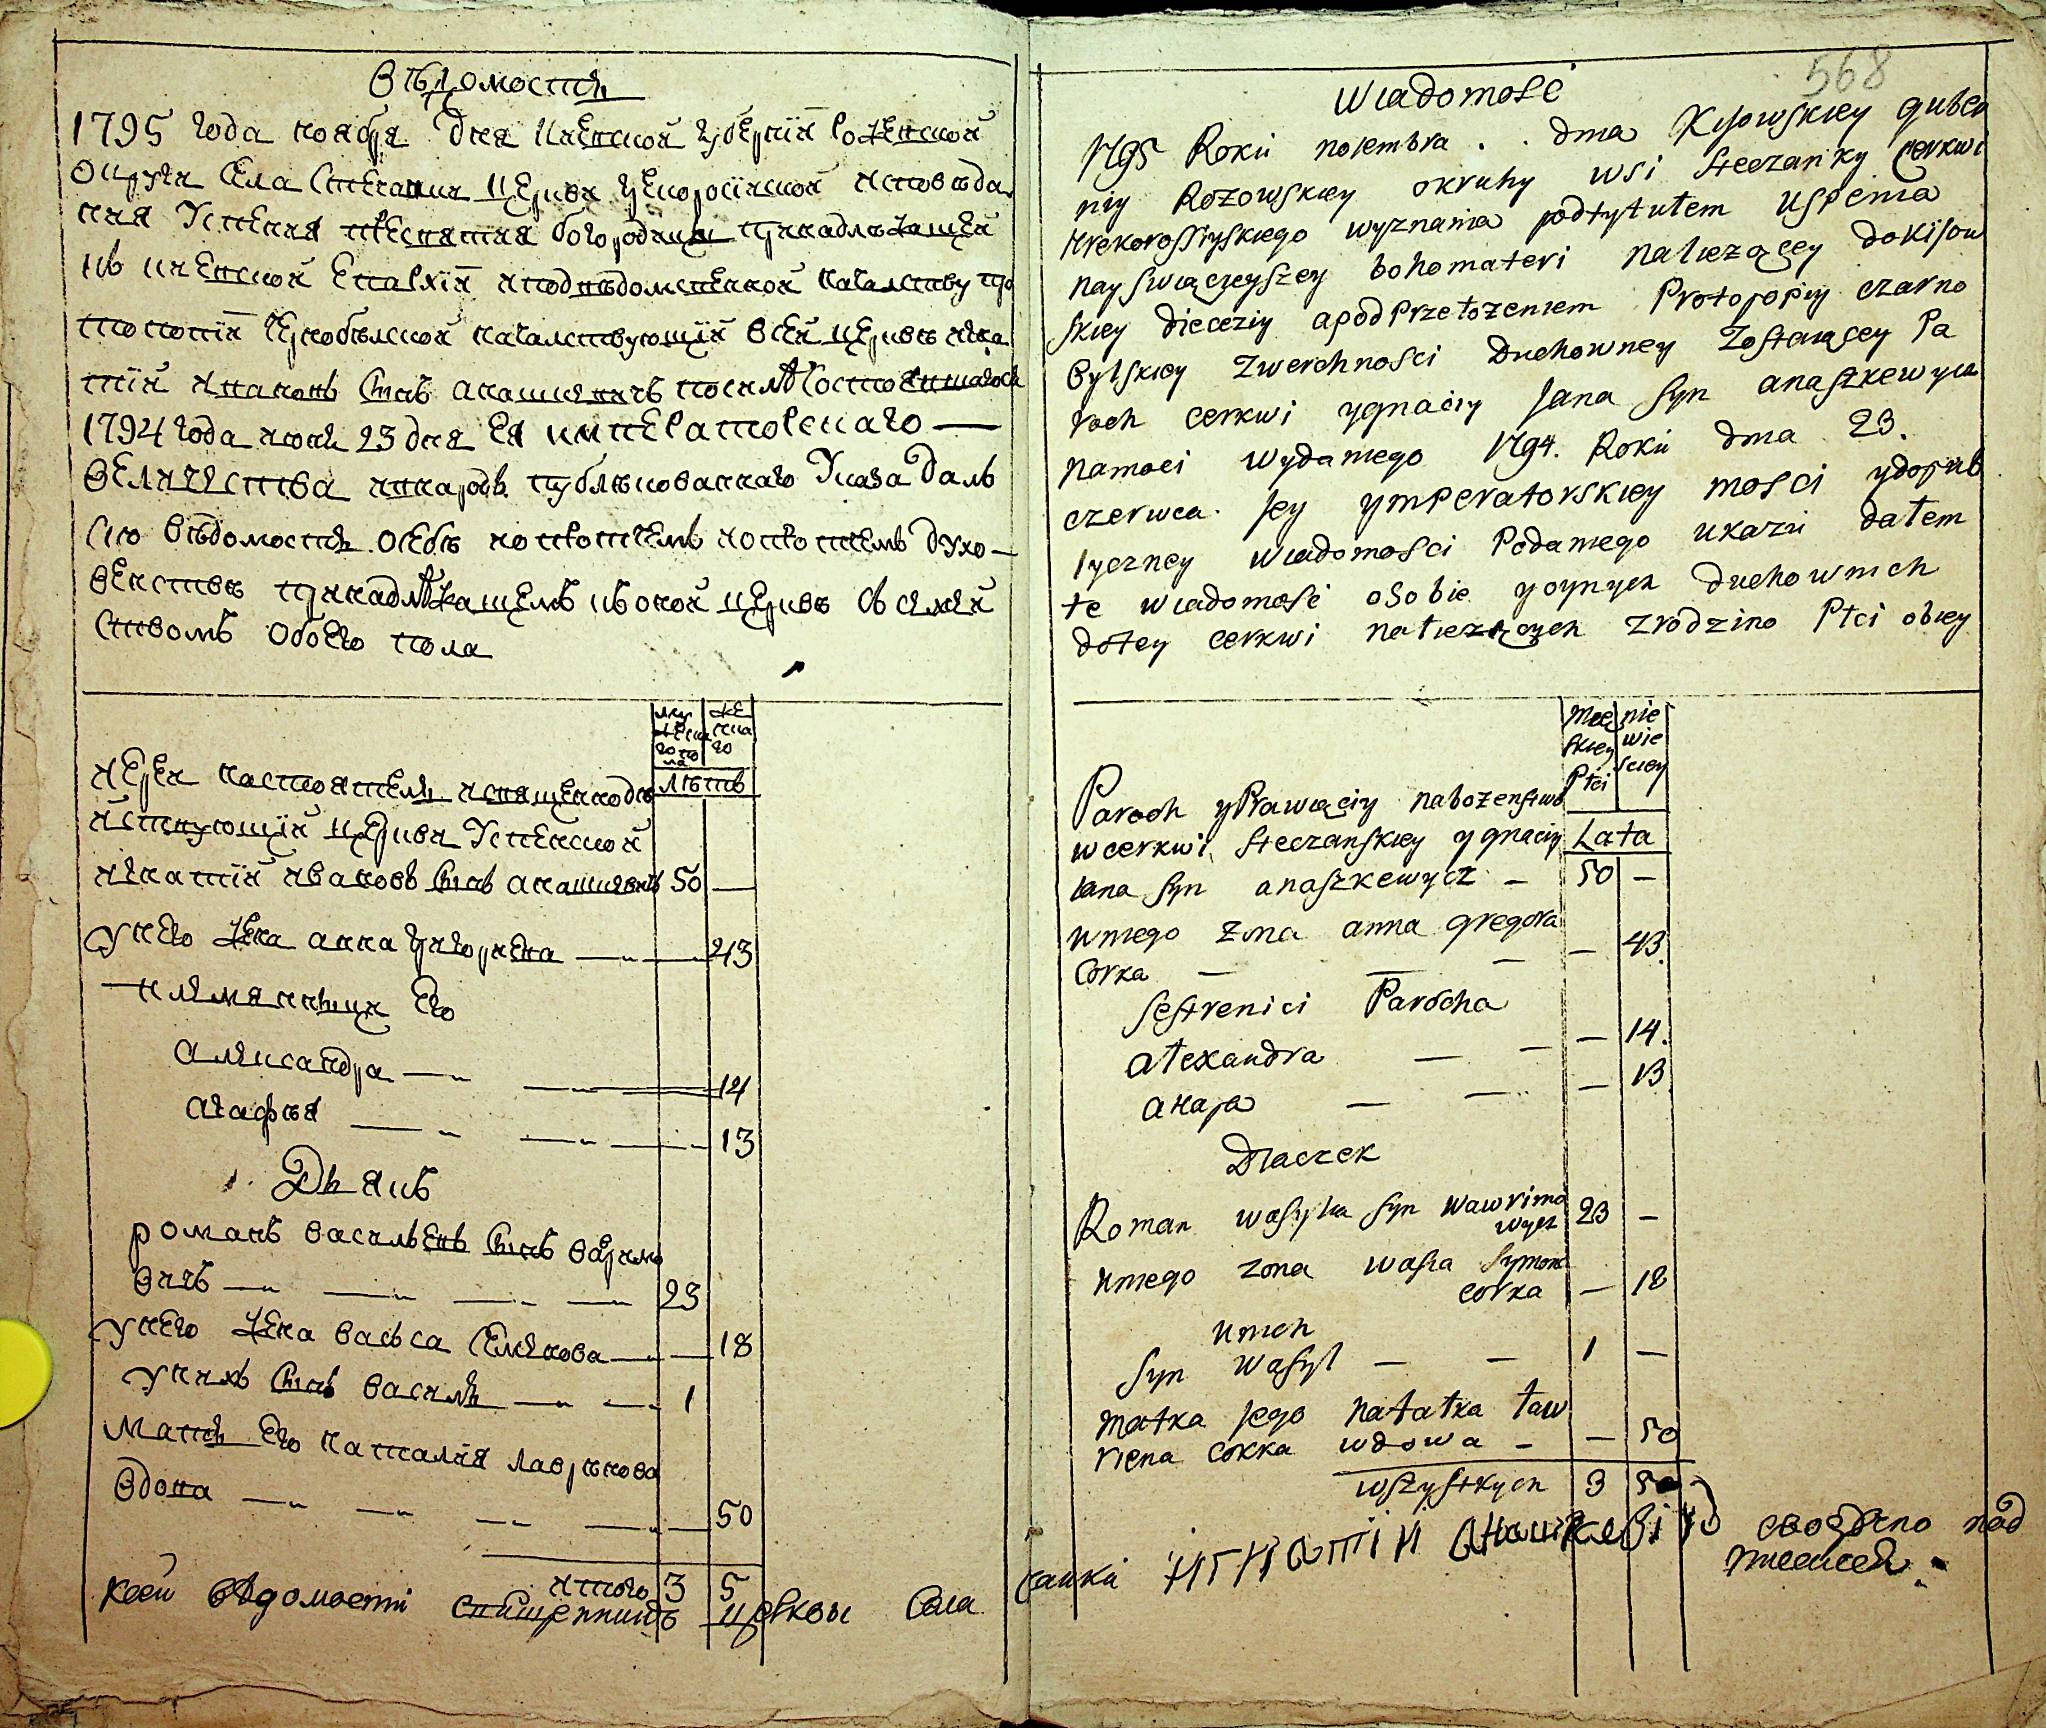 Вѣдомость
1795 года ноября дня Киевской губернiи
округи села Стечанки церкви грекоросiйской исповѣда
ния Успения пресвятия богородицы принадлежащей
къ киевской Епархiи и подвѣдомственной началству про
топопiи Чернобылской началствующiй в сей церкве игна
тiй иванов снъ анашкевичъ по силѣ состоявшагося
1794 года июня 23 дня Ея императорского —
величества и в народъ публѣкованнаго Указа далъ
сию вѣдомость о себѣ и о протчемъ духо—
венствѣ принадлѣжащемъ къ оной церквѣ съ семей
ствомъ обоего пола
му жеска го по ла
же нска го
лѣтъ
иерей настоятель и священнодѣ
йствующiй церкви Успенской
игнатiй ивановъ снъ анашкевичъ 50 —
у него жена анна григориева — 43
племянницы его
александра — 14
агафия — 13
Дьякъ
романъ васильевъ снъ вавримо
вичъ — 23
у него жена васьса семенова — 18
у нихъ снъ василь — 1
мать его наталия лавринова
вдова — 50
итого 3 5
к сей вѣдомости священникъ церквы села
568
Wiadomosc
1795 Roku nowembra . . dnia Kijowskiey guber
niy Rozowskiey okruhy wsi Steczanky cerkwi
Hrekorossiyskiego wyznania podtytułem uspenia
nayswiączeyszey bohomateri należącey dokijow
skiey dieceziy apodprzełożeniem Protopopiy czarno
bylskiey zwerchnosci Duchowney zostaiącey Pa
roch cerkwi ygnaciy Jana syn anaszkewycz
namoci wydanego 1794. Roku dnia 23.
czerwca. jey ymperatorskiey mosci ydopub
lyczney wiadomosci Podanego ukazu dałem
te wiadomosc osobie yoynych duchownich
dotey cerkwi należących zrodzino Płci obiey
męs skiey Płci
nie wie sciey
Lata
Paroch yPrawiąciy nabożenstwo
wcerkwi Steczanskiey ygnaciy
iana syn anaszkewycz — 50 —
uniego zona anna gregora
corka — — — — 43.
sestrenici Parocha
ałexandra — — — 14.
ahapa — — — 13
Diaczek
Roman wasyla syn wawrimo
wycz 23 —
uniego zona wasia symona
corka — 18
unich
syn wasyl — — 1 —
matka jego natałka ław
riena corka wdowa — — 50
wszystkych 3 5
чанки Игнатiй Анашкевiчъ своэрчно под
писался.